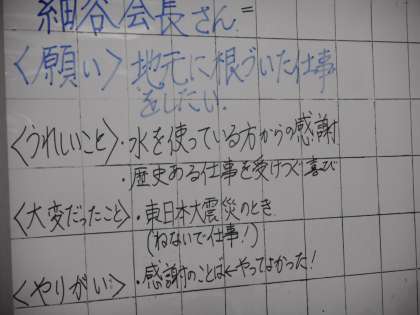 細谷会長さん=
〈願い〉地元に根づいた仕事
をしたい.
〈うれしいこと〉・水を使っている方からの感謝
・歴史ある仕事を受けつぐ喜び
〈大変だったこと〉・東日本大震災のとき
(ねないで仕事!)
〈やりがい〉・感謝のことば←やってよかった!